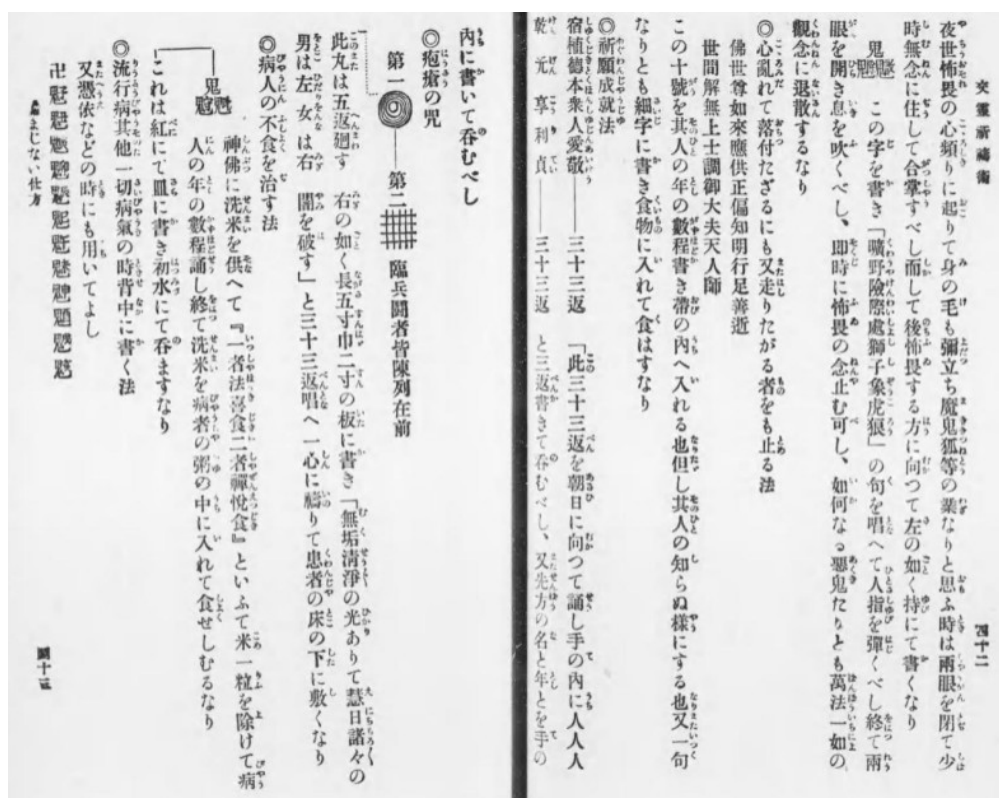 交靈祈禱術
四十二
夜世怖畏の心頻りに起りて身の毛も彌立ち魔鬼狐等の業なりと思ふ時は兩眼を閉て少
時無念に住して合掌すべし而して後怖畏する方に向つて左の如く持にて書くなり
この字を書き「曠野險際處獅子象虎狼」の句を唱へて人指を彈くべし終て兩
眼を開き息を吹くべし、即時に怖畏の念止む可し、如何なる惡鬼たりとも萬法一如の
觀念に退散するなり
◎心亂れて落付たざるにも又走りたがる者をも止る法
佛世尊如來應供正偏知明行足善逝
世間解無上士調御大夫天人師
この十號を其人の年の數程書き帶の內へ入れる也但し其人の知らぬ樣にする也又一句
なりとも細字に書き食物に入れて食はすなり
◎祈願成就法
宿植德本衆人愛敬――三十三返 「此三十三返を朝日に向つて誦し手の內に人人人
乾元享利貞――三十三返 と三返書きて呑むべし、又先方の名と年とを手の
內に書いて呑むべし
◎疱瘡の咒
第一――第二 臨兵鬪者皆陳列在前
此丸は五返廻す 右の如く長五寸巾二寸の板に書き「無垢清淨の光ありて慧日諸々の
男は左 女は右 闇を破す」と三十三返唱へ一心に禱りて患者の床の下に敷くなり
◎病人の不食を治す法
神佛に洗米を供へて『一者法喜食二者禪悅食』といふて米一粒を除けて病
人の年の數程誦し終て洗米を病者の粥の中に入れて食せしむるなり
これは紅にて皿に書き初水にて呑ますなり
◎流行病其他一切病氣の時背中に書く法
又憑依などの時にも用いてよし
まじない仕方
四十三